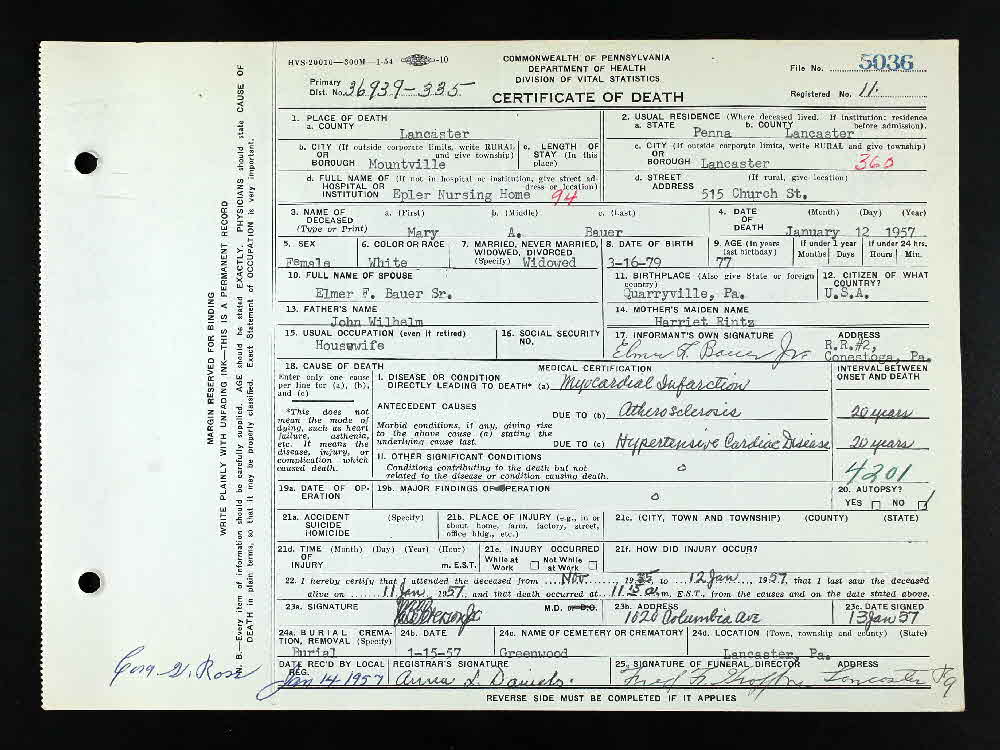 HVS-20016—500M—1-54 -10
COMMONWEALTH OF PENNSYLVANIA
DEPARTMENT OF HEALTH
DIVISION OF VITAL STATISTICS
CERTIFICATE OF DEATH
File No. 5036
Primary
Dist. No. 36939-335
Registered No. 11.
1. PLACE OF DEATH
a. COUNTY
Lancaster
2. USUAL RESIDENCE (Where deceased lived. If institution: residence
a. STATE b. COUNTY before admission).
Penna Lancaster
b. CITY (If outside corporate limits, write RURAL
OR and give township)
BOROUGH Mountville
c. LENGTH OF
STAY (In this
place)
c. CITY (If outside corporate limits, write RURAL and give township)
OR
BOROUGH Lancaster 360
d. FULL NAME OF (If not in hospital or institution, give street ad-
HOSPITAL OR dress or location)
INSTITUTION Epler Nursing Home 94
d. STREET (If rural, give location)
ADDRESS
515 Church St.
3. NAME OF a. (First) b. (Middle) c. (Last)
DECEASED
(Type or Print) Mary A. Bauer
4. DATE (Month) (Day) (Year)
OF
DEATH January 12 1957
5. SEX
Female
6. COLOR OR RACE
White
7. MARRIED, NEVER MARRIED,
WIDOWED, DIVORCED
(Specify) Widowed
8. DATE OF BIRTH
3-16-79
9. AGE (In years
last birthday)
77
If under 1 year
Months Days
If under 24 hrs.
Hours Min.
10. FULL NAME OF SPOUSE
Elmer F. Bauer Sr.
11. BIRTHPLACE (Also give State or foreign
country)
Quarryville, Pa.
12. CITIZEN OF WHAT
COUNTRY?
U.S.A.
13. FATHER'S NAME
John Wilhelm
14. MOTHER'S MAIDEN NAME
Harriet Rintz
15. USUAL OCCUPATION (even if retired)
Housewife
16. SOCIAL SECURITY
NO.
17. INFORMANT'S OWN SIGNATURE
Elmer F. Bauer Jr.
ADDRESS
R.R.#2,
Conestoga, Pa.
18. CAUSE OF DEATH
Enter only one cause
per line for (a), (b),
and (c)
*This does not
mean the mode of
dying, such as heart
failure, asthenia,
etc. It means the
disease, injury, or
complication which
caused death.
MEDICAL CERTIFICATION
INTERVAL BETWEEN
ONSET AND DEATH
I. DISEASE OR CONDITION
DIRECTLY LEADING TO DEATH* (a) Myocardial Infarction
ANTECEDENT CAUSES
DUE TO (b) Atherosclerosis 20 years
Morbid conditions, if any, giving rise
to the above cause (a) stating the
underlying cause last.
DUE TO (c) Hypertensive Cardiac Disease 20 years
II. OTHER SIGNIFICANT CONDITIONS
Conditions contributing to the death but not
related to the disease or condition causing death.
o
4201
19a. DATE OF OP-
ERATION
19b. MAJOR FINDINGS OF OPERATION
o
20. AUTOPSY?
YES NO
21a. ACCIDENT (Specify)
SUICIDE
HOMICIDE
21b. PLACE OF INJURY (e.g., in or
about home, farm, factory, street,
office bldg., etc.)
21c. (CITY, TOWN AND TOWNSHIP) (COUNTY) (STATE)
21d. TIME (Month) (Day) (Year) (Hour)
OF
INJURY m. E.S.T.
21e. INJURY OCCURRED
While at Work Not While at Work
21f. HOW DID INJURY OCCUR?
22. I hereby certify that I attended the deceased from Nov. 1955, to 12 Jan, 1957, that I last saw the deceased
alive on 11 Jan, 1957, and that death occurred at 11:15 a.m, E.S.T., from the causes and on the date stated above.
23a. SIGNATURE
M.D. or D.O.
23b. ADDRESS
1020 Columbia Ave
23c. DATE SIGNED
13 Jan 57
24a. BURIAL, CREMA-
TION, REMOVAL (Specify)
Burial
24b. DATE
1-15-57
24c. NAME OF CEMETERY OR CREMATORY
Greenwood
24d. LOCATION (Town, township and county) (State)
Lancaster, Pa.
DATE REC'D BY LOCAL
REG.
Jan 14 1957
REGISTRAR'S SIGNATURE
Anna L. Daniels.
25. SIGNATURE OF FUNERAL DIRECTOR ADDRESS
Fred F. Groff Inc. Lancaster Pa
REVERSE SIDE MUST BE COMPLETED IF IT APPLIES
MARGIN RESERVED FOR BINDING
WRITE PLAINLY WITH UNFADING INK—THIS IS A PERMANENT RECORD
N. B.—Every item of information should be carefully supplied. AGE should be stated EXACTLY. PHYSICIANS should state CAUSE OF
DEATH in plain terms, so that it may be properly classified. Exact Statement of OCCUPATION is very important.
Cora G. Rose